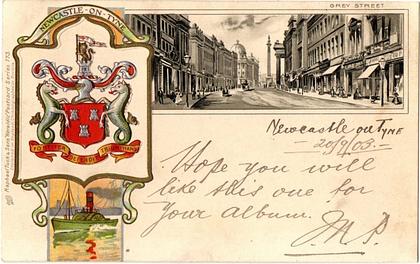 NEWCASTLE-ON-TYNE
GREY STREET
FORTITER DEFENDIT TRIUMPHANS
Raphael Tuck & Sons "Heraldic" Postcard Series 773.
Newcastle on Tyne
-20/9/03-
Hope you will
like this one for
your album.
M.P.